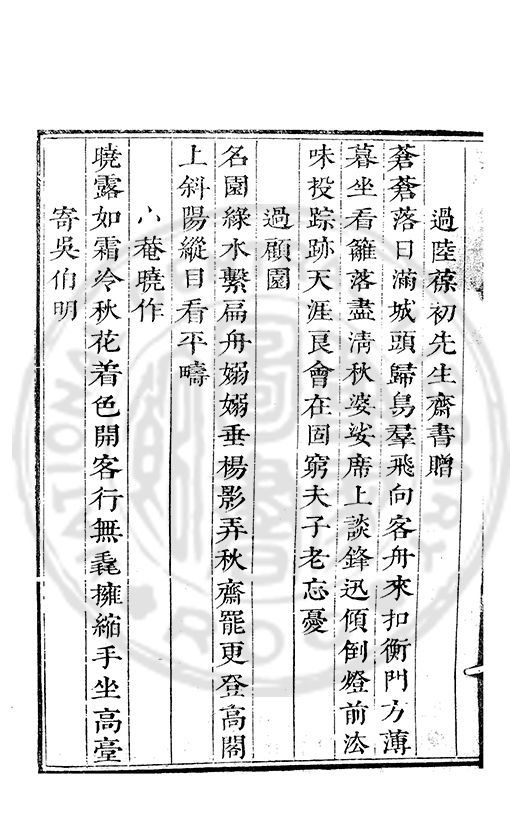 過陸葆初先生齋書贈
蒼蒼落日滿城頭歸鳥羣飛向客舟來扣衡門方薄
暮坐看籬落盡淸秋婆娑席上談鋒迅傾倒燈前法
味投踪跡天涯良會在固窮夫子老忘憂
過頋園
名園綠水繫扁舟嫋嫋垂楊影弄秋齋罷更登高閣
上斜陽縱目看平疇
八菴曉作
曉露如霜冷秋花着色開客行無毳擁縮手坐高臺
寄吳伯明